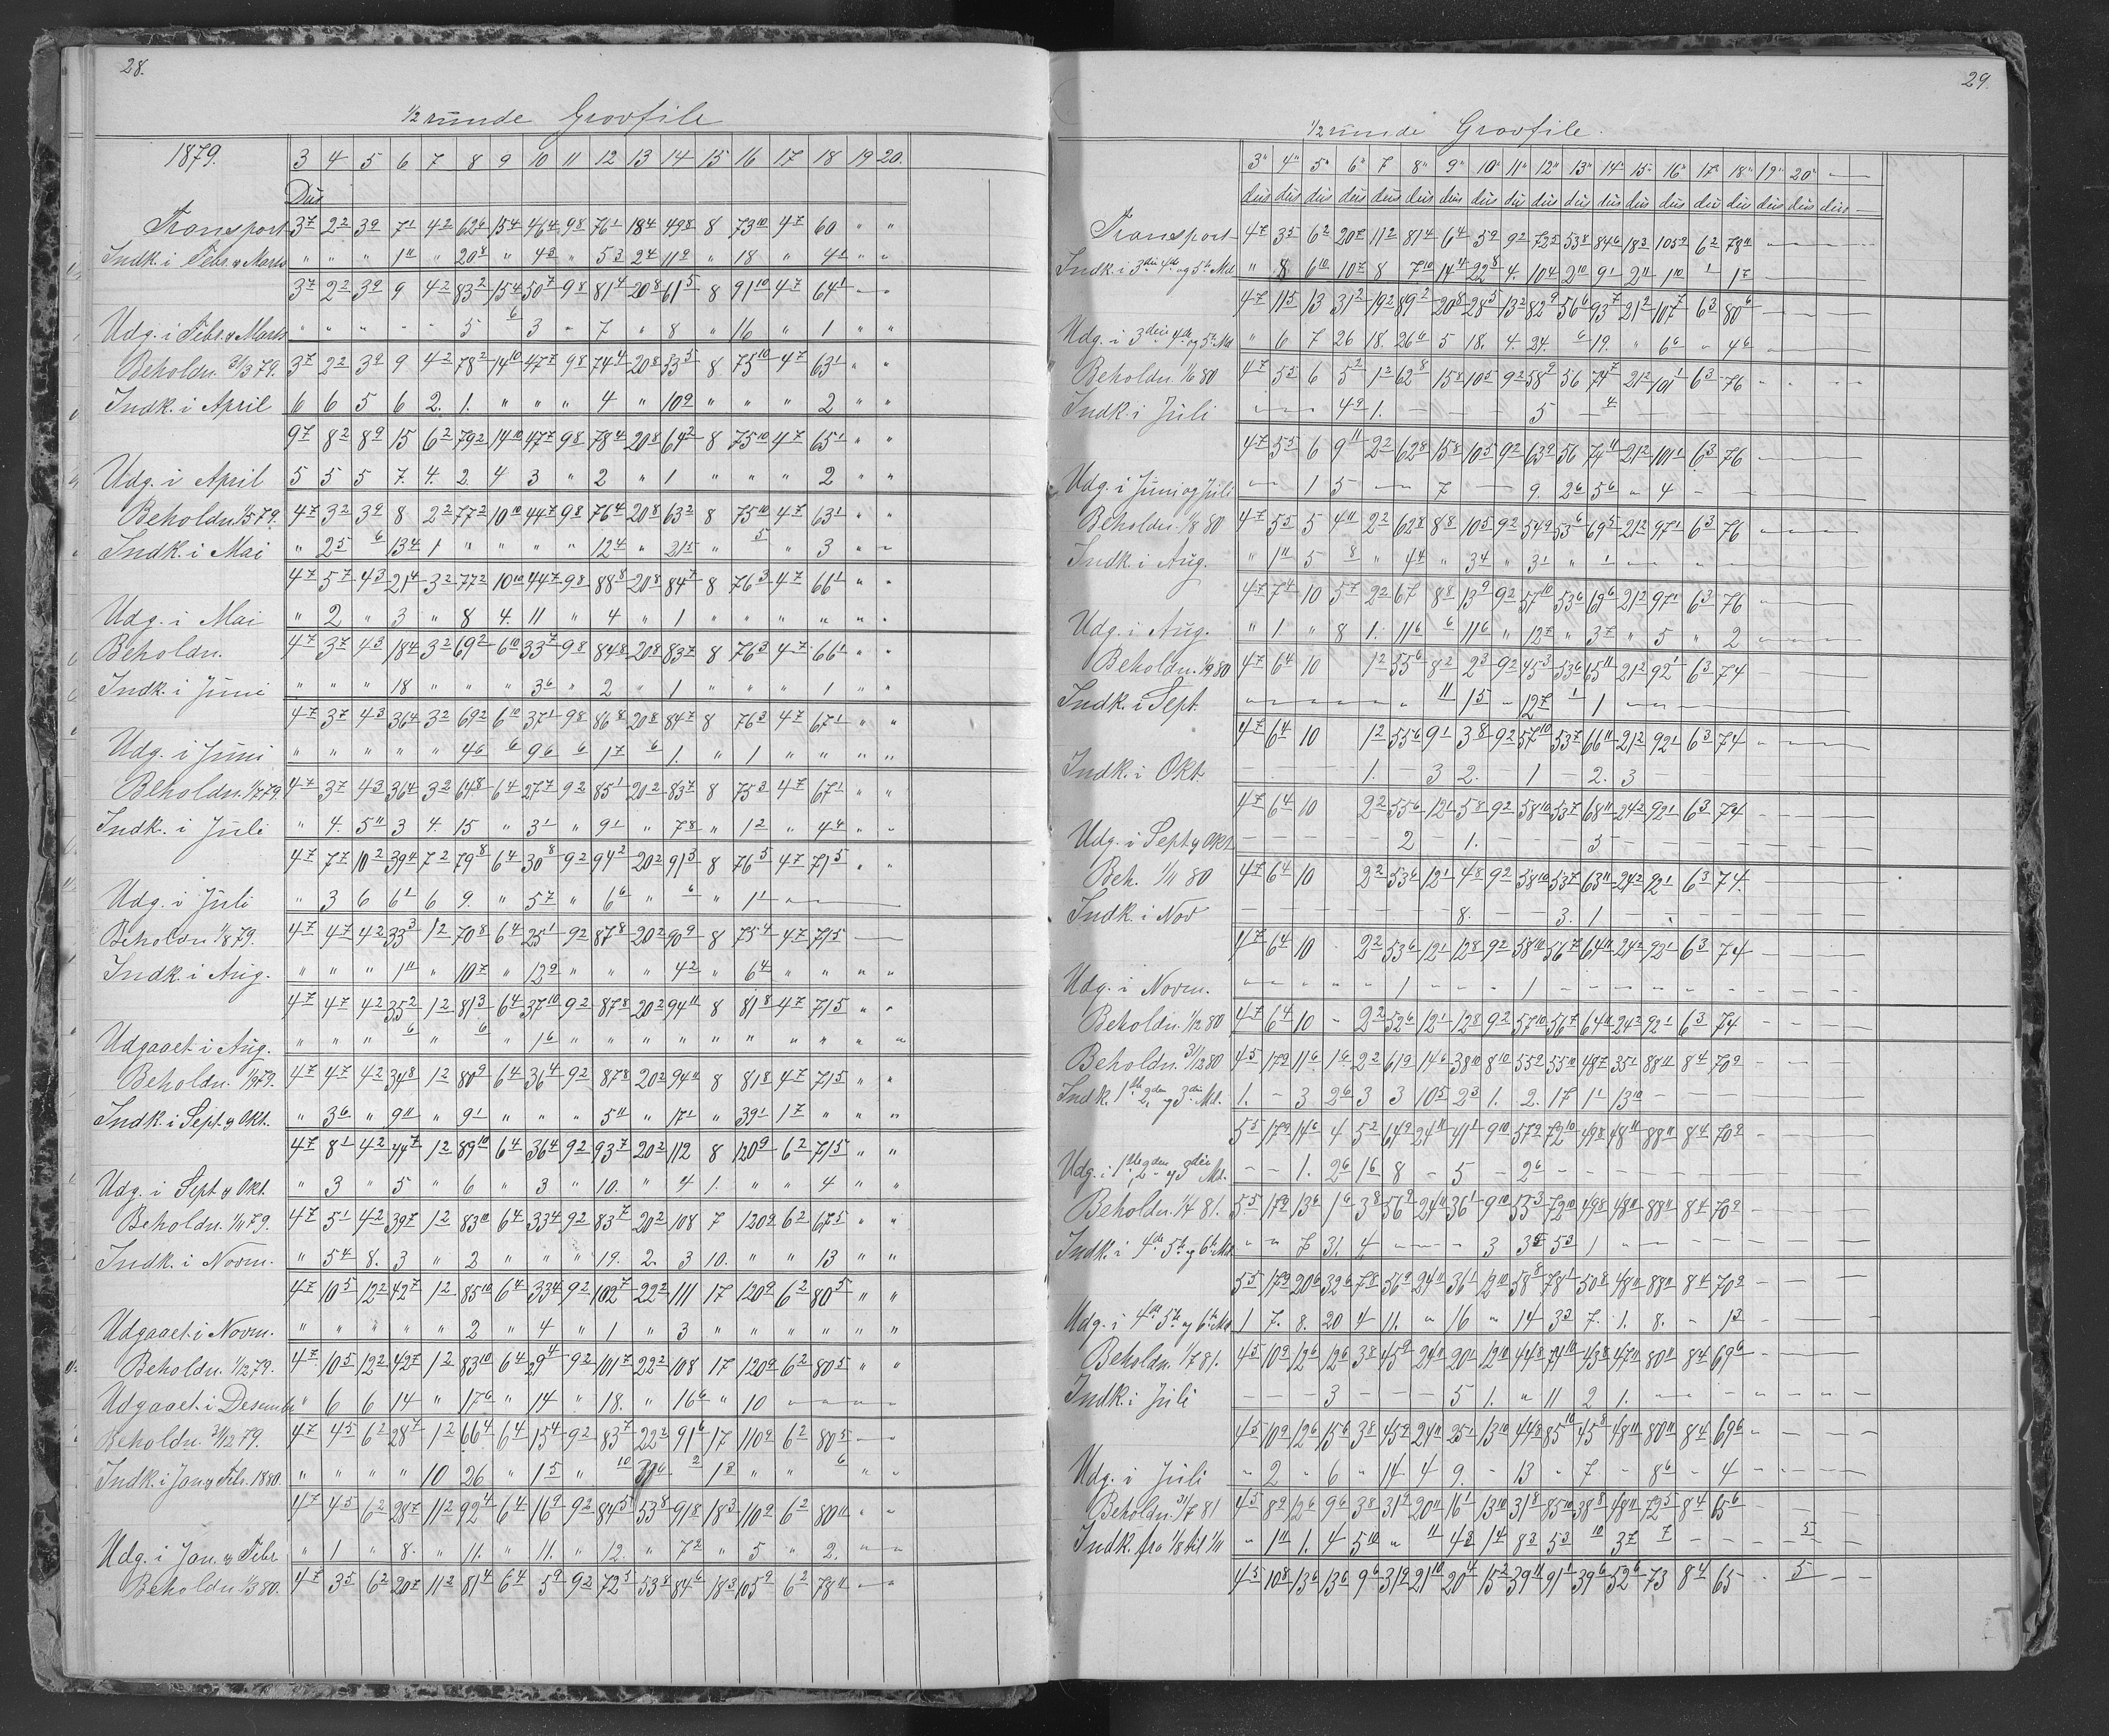 28.
1/2 runde Groffile
1879. 3 4 5 6 7 8 9 10 11 12 13 14 15 16 17 18 19 20.
Dus
Transport 3 7 2 2 3 9 7 1 4 2 62 6 15 4 46 4 9 8 76 1 18 4 49 8 8 73 10 4 7 60 " "
Indk. i Febr. & Marts " " " 1 11 " 20 8 " 4 3 " 5 3 2 4 11 9 " 18 " 4 1 " "
3 7 2 2 3 9 9 4 2 83 2 15 4 50 7 9 8 81 4 20 8 61 5 8 91 10 4 7 64 1
Udg. i Febr. & Marts " " " " " 5 6 3 " 7 " 8 " 16 " 1 " "
Beholdn. 31/3 79. 3 7 2 2 3 9 9 4 2 78 2 14 10 47 7 9 8 74 4 20 8 53 5 8 75 10 4 7 63 1 " "
Indk. i April 6 6 5 6 2. 1. " " " 4 " 10 9 " " " 2 " "
9 7 8 2 8 9 15 6 2 79 2 14 10 47 7 9 8 78 4 20 8 64 2 8 75 10 4 7 65 1 " "
Udg. i April 5 5 5 7. 4. 2. 4 3 " 2 " 1 " " " 2 " "
Beholdn. 1/5 79. 4 7 3 2 3 9 8 2 2 77 2 10 10 44 7 9 8 76 4 20 8 63 2 8 75 10 4 7 63 1 " "
Indk. i Mai " 2 5 6 13 4 1 " " " " 12 4 " 21 5 " 5 " 3 " "
4 7 5 7 4 3 21 4 3 2 77 2 10 10 44 7 9 8 88 8 20 8 84 7 8 76 3 4 7 66 1 " "
Udg. i Mai " 2 " 3 " 8 4. 11 " 4 " 1 " " " " " "
Beholdn. 4 7 3 7 4 3 18 4 3 2 69 2 6 10 33 7 9 8 84 8 20 8 83 7 8 76 3 4 7 66 1 " "
Indk. i Juni " " " 18 " " " 3 6 " 2 " 1 " " " 1 " "
4 7 3 7 4 3 36 4 3 2 69 2 6 10 37 1 9 8 86 8 20 8 84 7 8 76 3 4 7 67 1 " "
Udg. i Juni " " " " " 4 6 6 9 6 6 1 7 6 1. " 1 " " " "
Beholdn. 1/7 79. 4 7 3 7 4 3 36 4 3 2 64 8 6 4 27 7 9 2 85 1 20 2 83 7 8 75 3 4 7 67 1 " "
Indk. i Juli " 4. 5 11 3 4. 15 " 3 1 " 9 1 " 7 8 " 1 2 " 4 4 " "
4 7 7 7 10 2 39 4 7 2 79 8 6 4 30 8 9 2 94 2 20 2 91 3 8 76 5 4 7 71 5 " "
Udg. i Juli " 3 6 6 1 6 9. " 5 7 " 6 6 " 6 " 1 1
Beholdn 1/8 79. 4 7 4 7 4 2 33 3 1 2 70 8 6 4 25 1 9 2 87 8 20 2 90 9 8 75 4 4 7 71 5
Indk. i Aug. " " " 1 11 " 10 7 " 12 9 " " " 4 2 " 6 4 " " " "
4 7 4 7 4 2 35 2 1 2 81 3 6 4 37 10 9 2 87 8 20 2 94 11 8 81 8 4 7 71 5 " "
Udgaaet i Aug. " " " 6 " 6 " 1 6 " " " " " " " " " "
Beholdn. 1/9 79. 4 7 4 7 4 2 34 8 1 2 80 9 6 4 36 4 9 2 87 8 20 2 94 11 8 81 8 4 7 71 5 " "
Indk. i Sept. & Okt. " 3 6 " 9 11 " 9 1 " " " 5 11 " 17 1 " 39 1 1 7 " " "
4 7 8 1 4 2 44 7 1 2 89 10 6 4 36 4 9 2 93 7 20 2 112 8 120 9 6 2 71 5 " "
Udg. i Sept & Okt. " 3 " 5 " 6 " 3 " 10. " 4 1. " " 4 " "
Beholdn. 1/11 79. 4 7 5 1 4 2 39 7 1 2 83 10 6 4 33 4 9 2 83 7 20 2 108 7 120 9 6 2 67 5 " "
Indk. i Novm. " 5 4 8. 3 " 2 " " " 19. 2. 3 10. " " 13 " "
4 7 10 5 12 2 42 7 1 2 85 10 6 4 33 4 9 2 102 7 22 2 111 17 120 9 6 2 80 5 " "
Udgaaet i Novm. " " " " " 2 " 4 " 1 " 3 " " " " " "
Beholdn. 1/12 79. 4 7 10 5 12 2 42 7 1 2 83 10 6 4 29 4 9 2 101 7 22 2 108 17 120 9 6 2 80 5 " "
Udgaaet i Desember " 6 6 14 " 17 6 " 14 " 18. " 16 6 " 10
Beholdn. 31/12 79. 4 7 4 5 6 2 28 7 1 2 66 4 6 4 15 4 9 2 83 7 22 2 91 6 17 110 9 6 2 80 5
Indk. i Jan & Febr. 1880. " " " " 10 26 " 1 5 " 10 31 6 2 1 3 " " 6 " "
4 7 4 5 6 2 28 7 11 2 92 4 6 4 16 9 9 2 84 5 53 8 91 8 18 3 110 9 6 2 80 11 " "
Udg. i Jan. & Febr " 1 " 8. " 11. " 11. " 12. " 7 2 " 5 " 2. " "
Beholdn 1/3 80. 4 7 3 5 6 2 20 7 11 2 81 4 6 4 5 9 9 2 72 5 53 8 84 6 18 3 105 9 6 2 78 11
29.
1/2 runde Groffile.
3" 4" 5" 6" 7 8" 9" 10" 11" 12" 13" 14" 15" 16" 17" 18" 19" 20"
dus dus dus dus dus dus dus dus dus dus dus dus dus dus dus dus dus dus dus
Transport 4 7 3 5 6 2 20 7 11 2 81 4 6 4 5 9 9 2 72 5 53 8 84 6 18 3 105 9 6 2 78 11
Indk. i 3die 4de og 5te Md " 8 6 10 10 7 8 7 10 14 4 22 8 4. 10 4 2 10 9 1 2 11 1 10 1 1 7
4 7 11 5 13 31 2 19 2 89 2 20 8 28 5 13 2 82 9 56 6 93 7 21 2 107 7 6 3 80 6
Udg. i 3die 4de og 5te Md " 6 7 26 18. 26 6 5 18. 4. 24. 6 19. " 6 6 " 4 6
Beholdn. 1/6 80 4 7 5 5 6 5 2 1 2 62 8 15 8 10 5 9 2 58 9 56 74 7 21 2 101 1 6 3 76
Indk. i Juli 4 9 1. 5 4
4 7 5 5 6 9 11 2 2 62 8 15 8 10 5 9 2 63 9 56 74 11 21 2 101 1 6 3 76
Udg. i Juni og Juli 1 5 7 9. 2 6 5 6 " 4
Beholdn. 1/8 80 4 7 5 5 5 4 11 2 2 62 8 8 8 10 5 9 2 54 9 53 6 69 5 21 2 97 1 6 3 76
Indk. i Aug. " 1 11 5 8 " 4 4 " 3 4 " 3 1 " 1
4 7 7 4 10 5 7 2 2 67 8 8 13 9 9 2 57 10 53 6 69 6 21 2 97 1 6 3 76
Udg. i Aug. " 1 " 8 1. 11 6 6 11 6 " 12 7 " 3 7 " 5 " 2
Beholdn. 1/9 80 4 7 6 4 10 1 2 55 6 8 2 2 3 9 2 45 3 53 6 65 11 21 2 92 1 6 3 74
Indk. i Sept 11 1 5 12 7 1 1
4 7 6 4 10 1 2 55 6 9 1 3 8 9 2 57 10 53 7 66 11 21 2 92 1 6 3 74
Indk. i Okt 1. 3 2. 1 2. 3
4 7 6 4 10 2 2 55 6 12 1 5 8 9 2 58 10 53 7 68 11 24 2 92 1 6 3 74
Udg. i Sept & Okt 2 1. 5
Beh. 1/11 80 4 7 6 4 10 2 2 53 6 12 1 4 8 9 2 58 10 53 7 63 11 24 2 92 1 6 3 74.
Indk. i Nov 8. 3. 1
4 7 6 4 10 2 2 53 6 12 1 12 8 9 2 58 10 56 7 64 11 24 2 92 1 6 3 74
Udg. i Novm. 1 1
Beholdn. 1/12 80 4 7 6 4 10 2 2 52 6 12 1 12 8 9 2 57 10 56 7 64 11 24 2 92 1 6 3 74
Beholdn. 31/12 80 4 5 17 9 11 6 1 6 2 2 61 9 14 6 38 10 8 10 55 2 55 10 48 7 35 1 88 11 8 4 70 9
Indk. 1ste 2den og 3die Md. 1. - 3 2 6 3 3 10 5 2 3 1. 2. 17 1 1 13 10
5 5 17 9 14 6 4 5 2 64 9 24 11 41 1 9 10 57 2 72 10 49 8 48 11 88 11 8 4 70 9
Udg. i 1ste, 2den og 3die Md. - - 1. 2 6 1 6 8 - 5 - 2 6
Beholdn. 1/4 81. 5 5 17 9 13 6 1 6 3 8 56 9 24 11 36 1 9 10 55 3 72 10 49 8 48 11 88 11 8 4 70 9
Indk. i 4de 5te og 6te Md 7 31. 4 3 3 5 5 3 1
5 5 17 9 20 6 32 6 7 8 56 9 24 11 36 1 12 10 58 8 78 1 50 8 48 11 88 11 8 4 70 9
Udg. i 4de 5te og 6te Md 1 7. 8. 20 4 11. " 16 " 14 3 3 7. 1. 8. - 1 3
Beholdn. 1/7 81. 4 5 10 9 12 6 12 6 3 8 45 9 24 11 20 1 12 10 44 8 74 10 43 8 47 11 80 11 8 4 69 6
Indk. i Juli 3 5 1. " 11 2 1.
4 5 10 9 12 6 15 6 3 8 45 9 24 11 25 1 13 10 44 8 85 10 45 8 48 11 80 11 8 4 69 6
Udg. i Juli " 2 " 6 " 14 4 9. - 13 - 7 - 8 6 - 4
Beholdn. 31/7 81 4 5 8 9 12 6 9 6 3 8 31 9 20 11 16 1 13 10 31 8 85 10 38 8 48 11 72 5 8 4 65 6
Indk. fra 1/8 til 1/11 " 1 11 1. 4 5 10 " 11 4 3 1 4 8 3 5 3 10 3 7 7 5
4 5 10 8 13 6 13 6 9 6 31 9 21 10 20 4 15 2 39 11 91 1 39 6 52 6 73 8 4 65 5